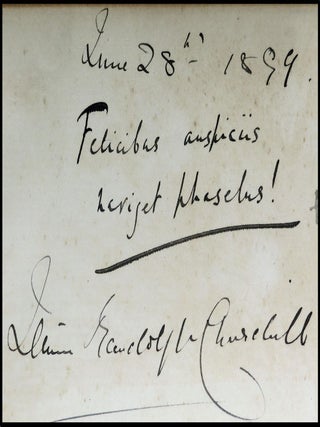 June 28th 1899.
Felicibus auspiciis
naviget phaselus!
Jennie Randolph Churchill